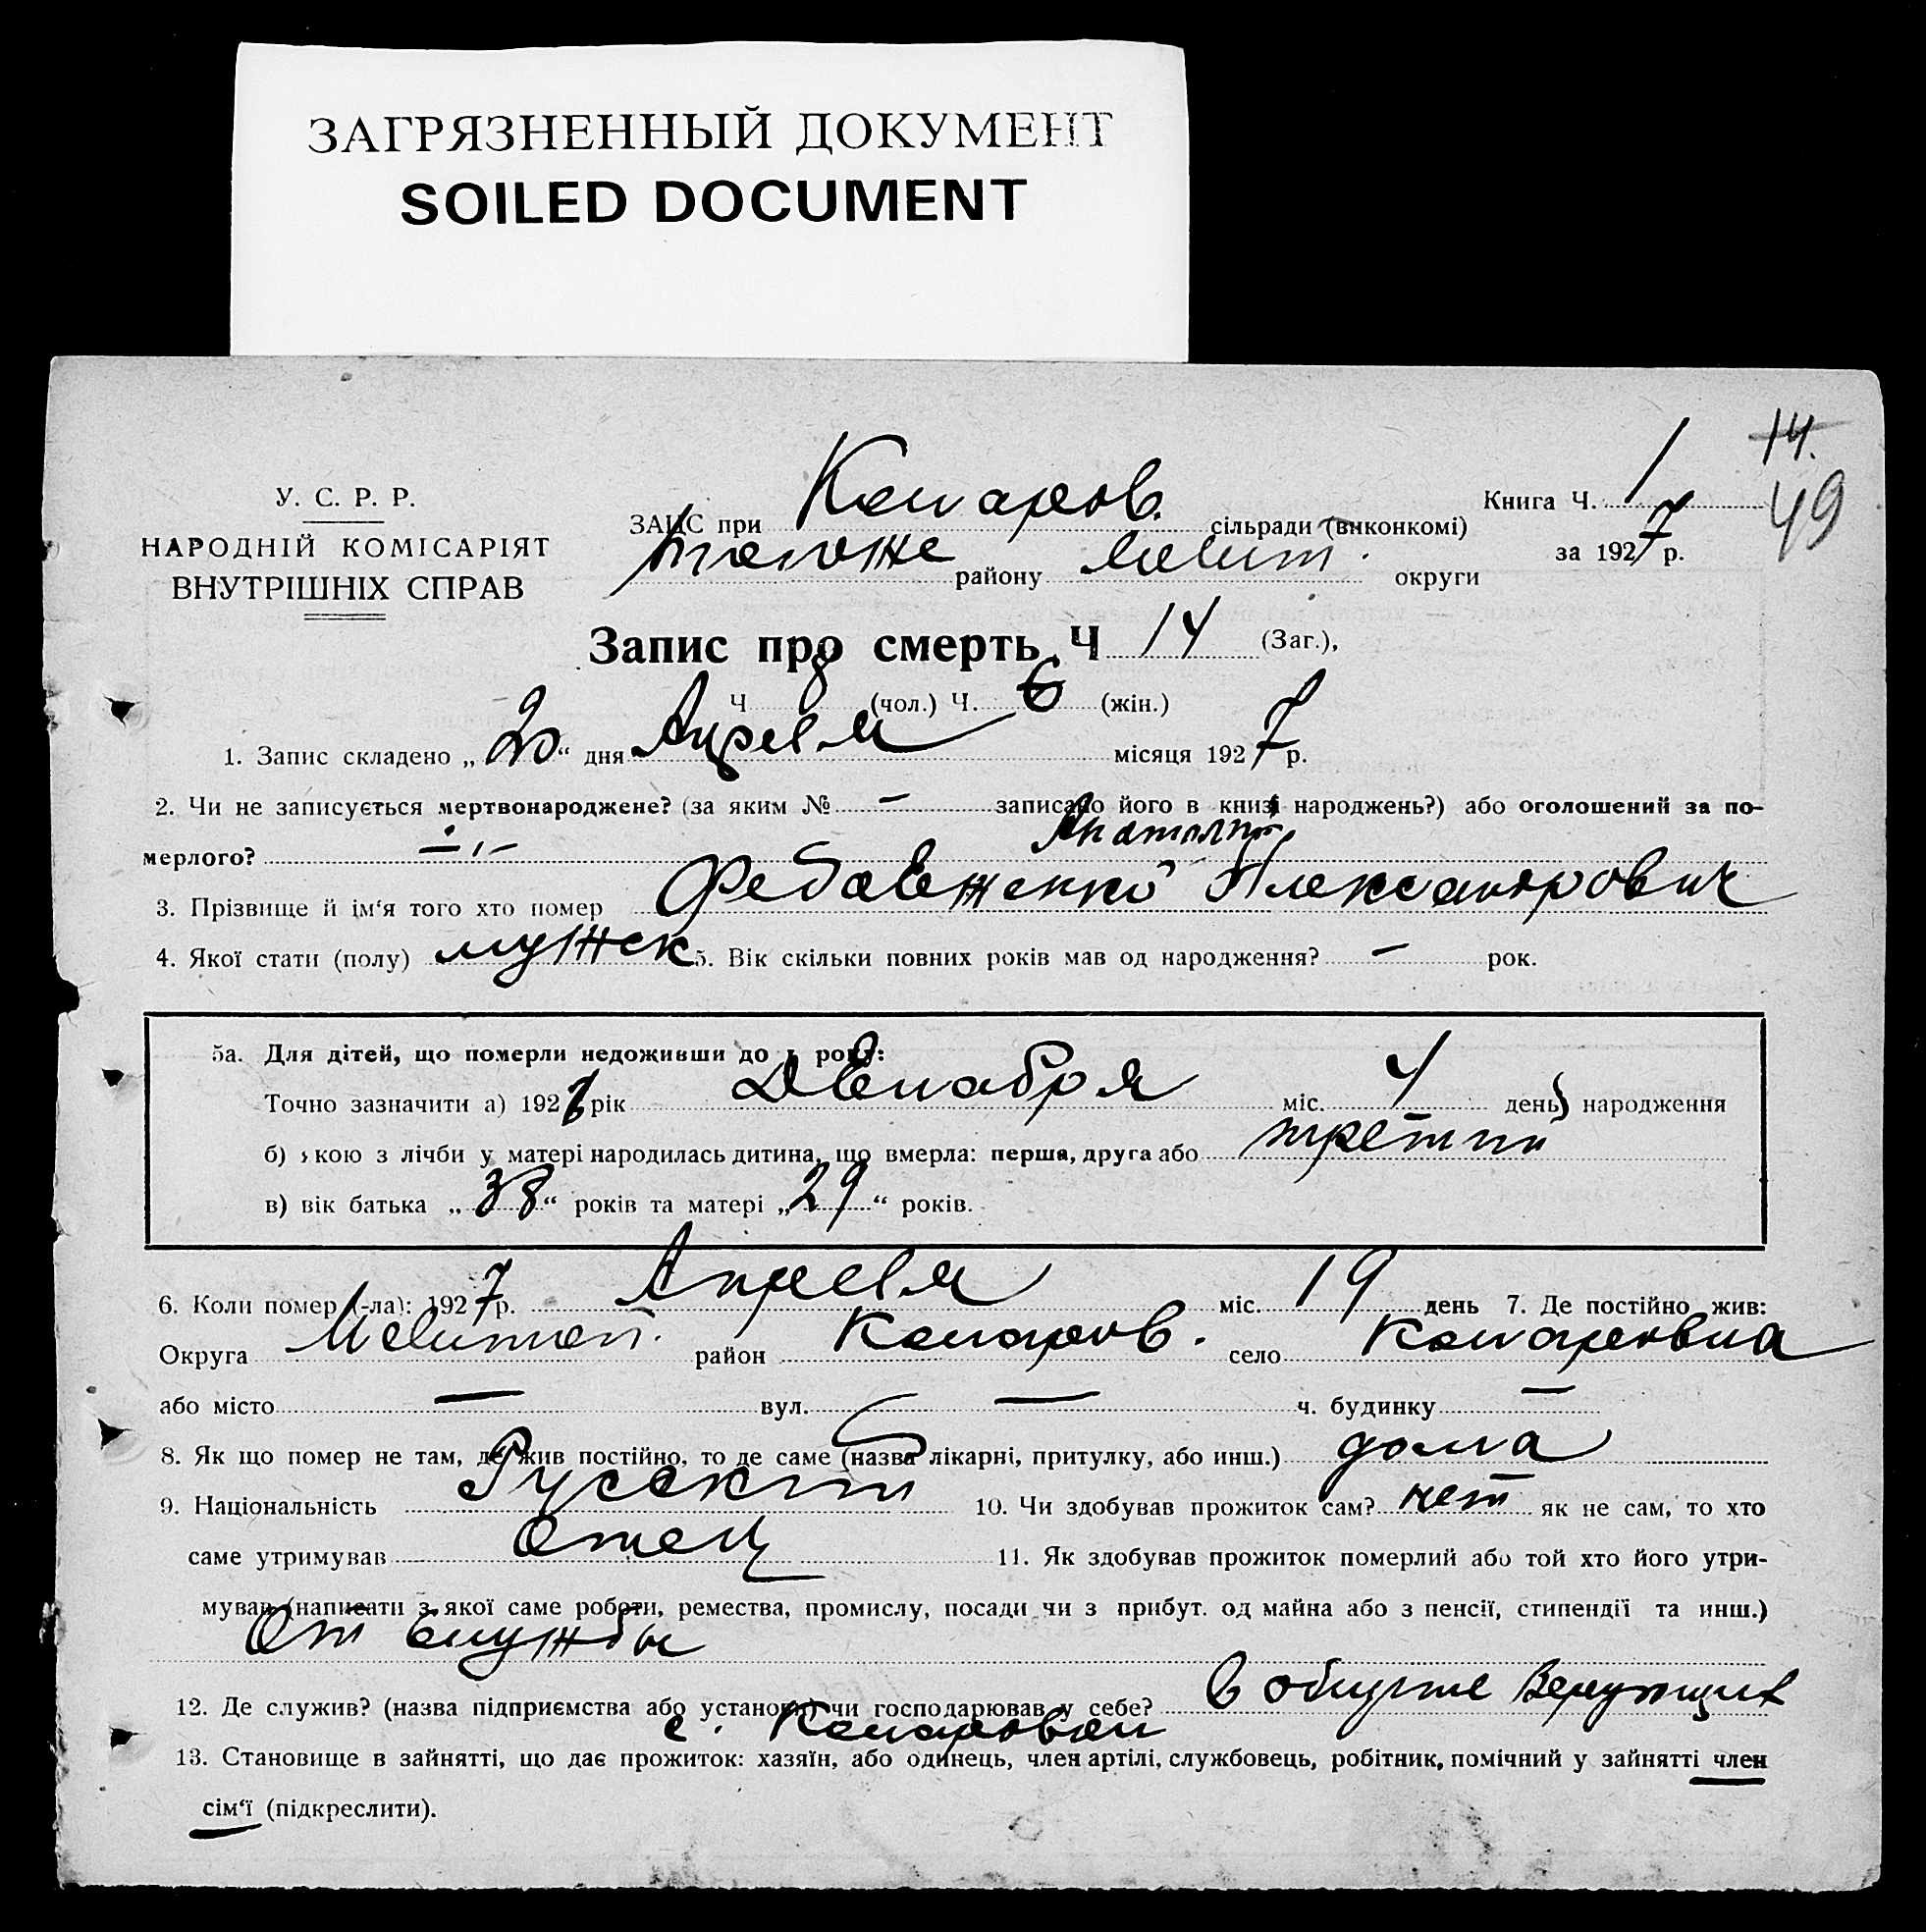 ЗАГРЯЗНЕННЫЙ ДОКУМЕНТ
SOILED DOCUMENT
14.
49
У. С. Р. Р.
НАРОДНІЙ КОМІСАРІЯТ
ВНУТРІШНІХ СПРАВ
ЗАЦС при Комаров. сільради (виконкомі)
Книга Ч. 1
за 1927 р.
району округи
Запис про смерть Ч 14 (Заг.),
Ч 8 (чол.) Ч. 6 (жін.)
1. Запис складено „20“ дня Апреля місяця 1927 р.
2. Чи не записується мертвонароджене? (за яким № — записано його в книзі народжень?) або оголошений за по-
мерлого? —
Анатолий
3. Прізвище й ім'я того хто помер Александрович
4. Якої стати (полу) мужск 5. Вік скільки повних років мав од народження? — рок.
5а. Для дітей, що померли недоживши до 1 року:
Точно зазначити а) 1926 рік Декабря міс. 4 день) народження
б) якою з лічби у матері народилась дитина, що вмерла: перша, друга або третий
в) вік батька „38“ років та матері „29“ років.
6. Коли помер (-ла): 1927 р. Апреля міс. 19 день 7. Де постійно жив:
Округа Мелитоп. район Комаров. село Комаровка
або місто — вул. — ч. будинку —
8. Як що помер не там, де жив постійно, то де саме (назва лікарні, притулку, або инш.) дома
9. Національність Русский 10. Чи здобував прожиток сам? нет як не сам, то хто
саме утримував Отец 11. Як здобував прожиток померлий або той хто його утри-
мував (написати з якої саме роботи, ремества, промислу, посади чи з прибут. од майна або з пенсії, стипендії та инш.)
От службы
12. Де служив? (назва підприємства або установи) чи господарював у себе? в общине Верующих
с. Комаровки
13. Становище в зайнятті, що дає прожиток: хазяїн, або одинець, член артілі, службовець, робітник, помічний у зайнятті член
сім'ї (підкреслити).